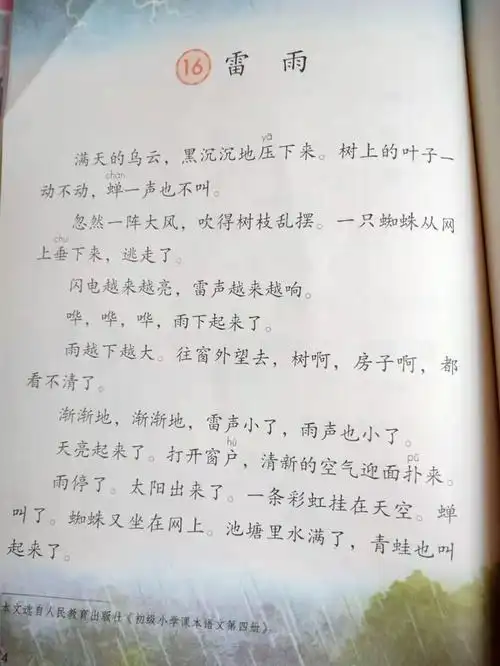 16 雷雨
yā
满天的乌云，黑沉沉地压下来。树上的叶子一
chán
动不动，蝉一声也不叫。
忽然一阵大风，吹得树枝乱摆。一只蜘蛛从网
chuí
上垂下来，逃走了。
闪电越来越亮，雷声越来越响。
哗，哗，哗，雨下起来了。
雨越下越大。往窗外望去，树啊，房子啊，都
看不清了。
渐渐地，渐渐地，雷声小了，雨声也小了。
hù pū
天亮起来了。打开窗户，清新的空气迎面扑来。
雨停了。太阳出来了。一条彩虹挂在天空。蝉
叫了。蜘蛛又坐在网上。池塘里水满了，青蛙也叫
起来了。
本文选自人民教育出版社《初级小学课本语文第四册》。